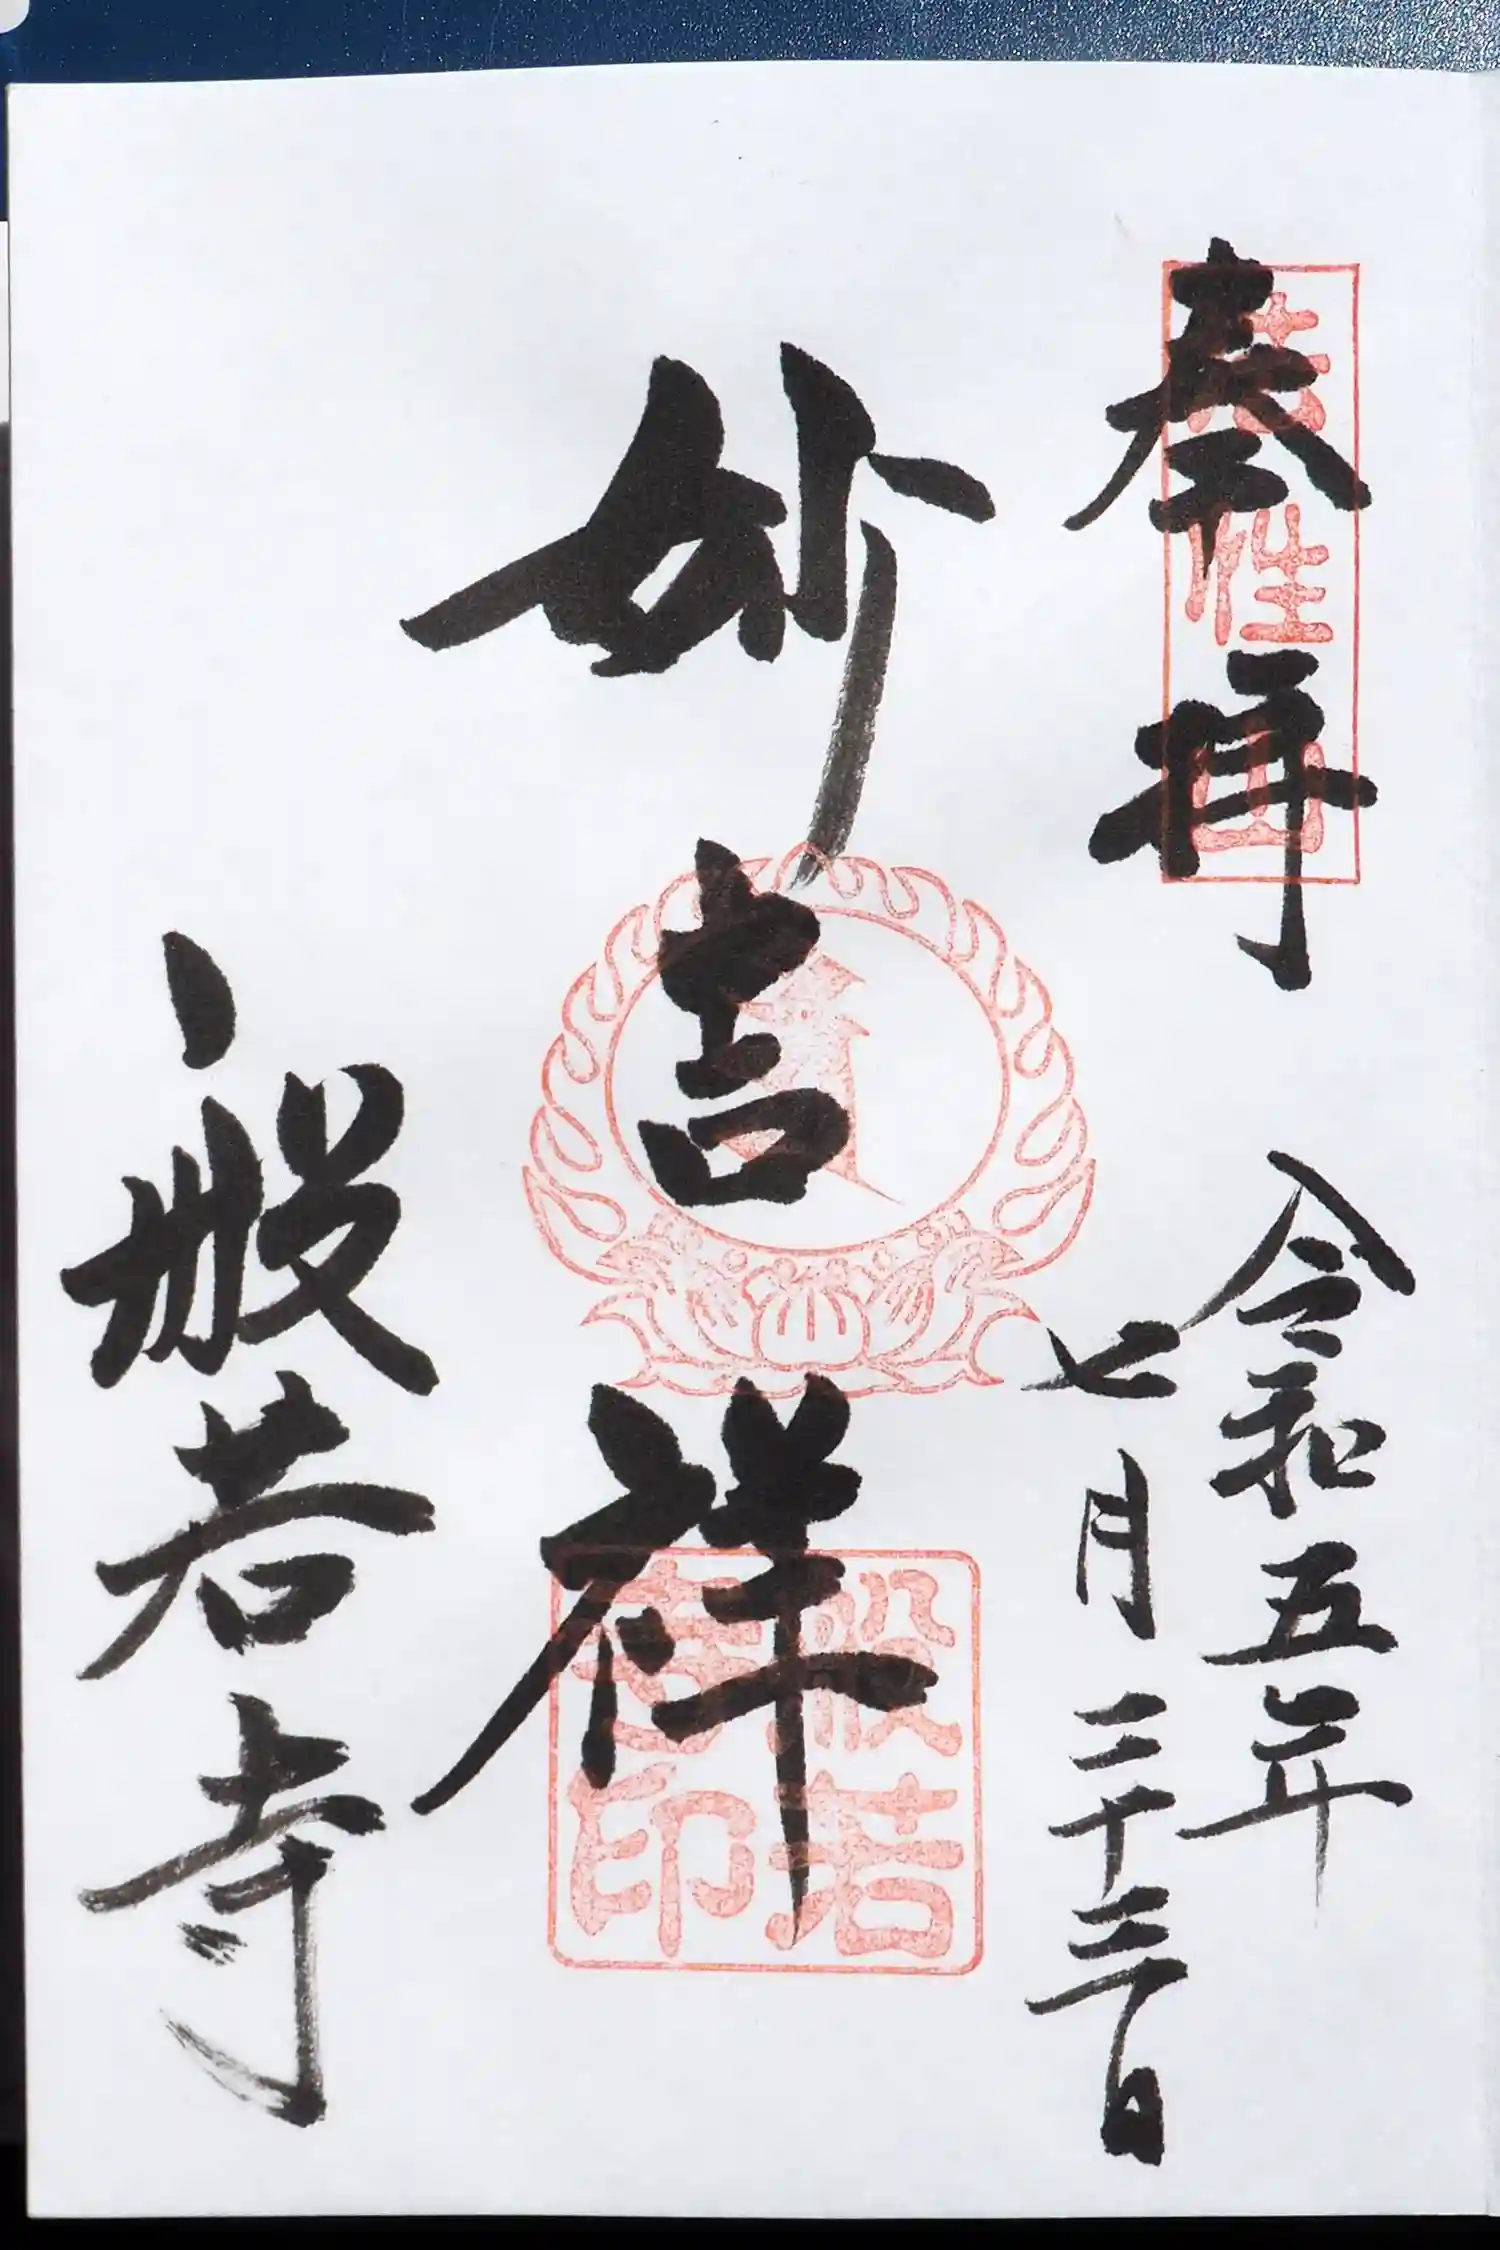 奉拝
法性山
令和五年
七月二十三日
妙吉祥
般若
印
般若寺